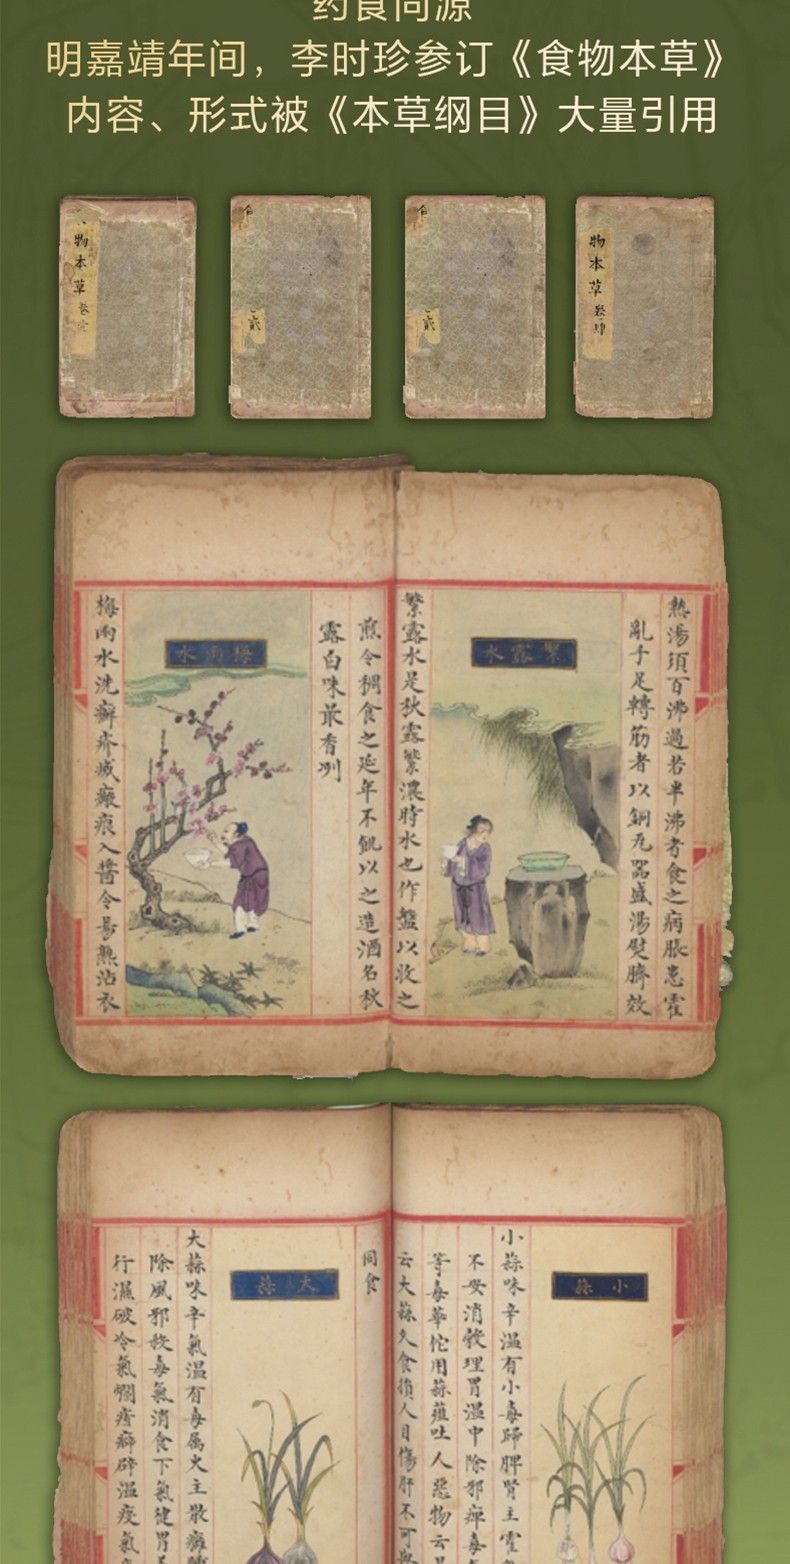 药食同源
明嘉靖年间，李时珍参订《食物本草》
内容、形式被《本草纲目》大量引用
物本草卷
物本草卷肆
熱湯須百沸過若半沸者食之病脹患霍
亂手足轉筋者以銅瓦器盛湯熨臍效
繁露水
繁露水是秋露繁濃時水也作盤以收之
煎令稠食之延年不飢以之造酒名秋
露白味最香冽
梅雨水
梅雨水洗癬疥滅瘢痕入醬令易熟沾衣
小蒜
小蒜味辛溫有小毒歸脾腎主霍
不安消穀理胃溫中除邪痺毒
等毒華佗用蒜虀吐人惡物云
云大蒜久食損人目傷肝不可與
同食
大蒜
大蒜味辛氣溫有毒属火主散癰腫
除風邪殺毒氣消食下氣健胃
行濕破冷氣爛痃癖辟溫疫氣